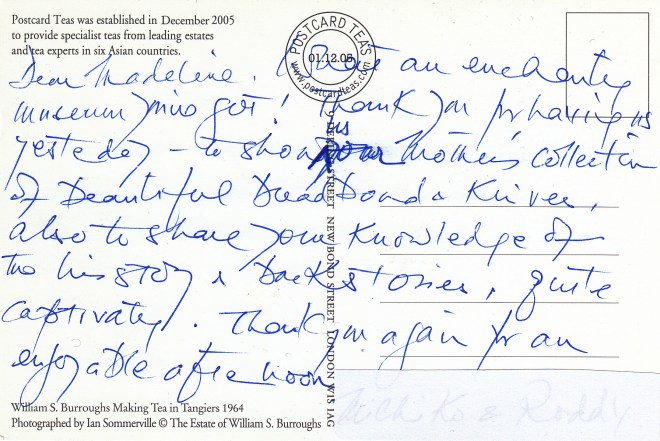 Postcard Teas was established in December 2005
to provide specialist teas from leading estates
and tea experts in six Asian countries.
POSTCARD TEAS
01.12.05
www.postcardteas.com
Dear Madeleine. What an enchanting
museum you've got! Thank you for having us
yesterday – to show us your Mothers collection
of Beautiful Bread Boards & Knives,
also to share your knowledge of
the history & back stories, quite
captivating. Thank you again for an
enjoyable afternoon
9 DERING STREET NEW BOND STREET LONDON W1S 1AG
Michiko & Roddy
William S. Burroughs Making Tea in Tangiers 1964
Photographed by Ian Sommerville © The Estate of William S. Burroughs